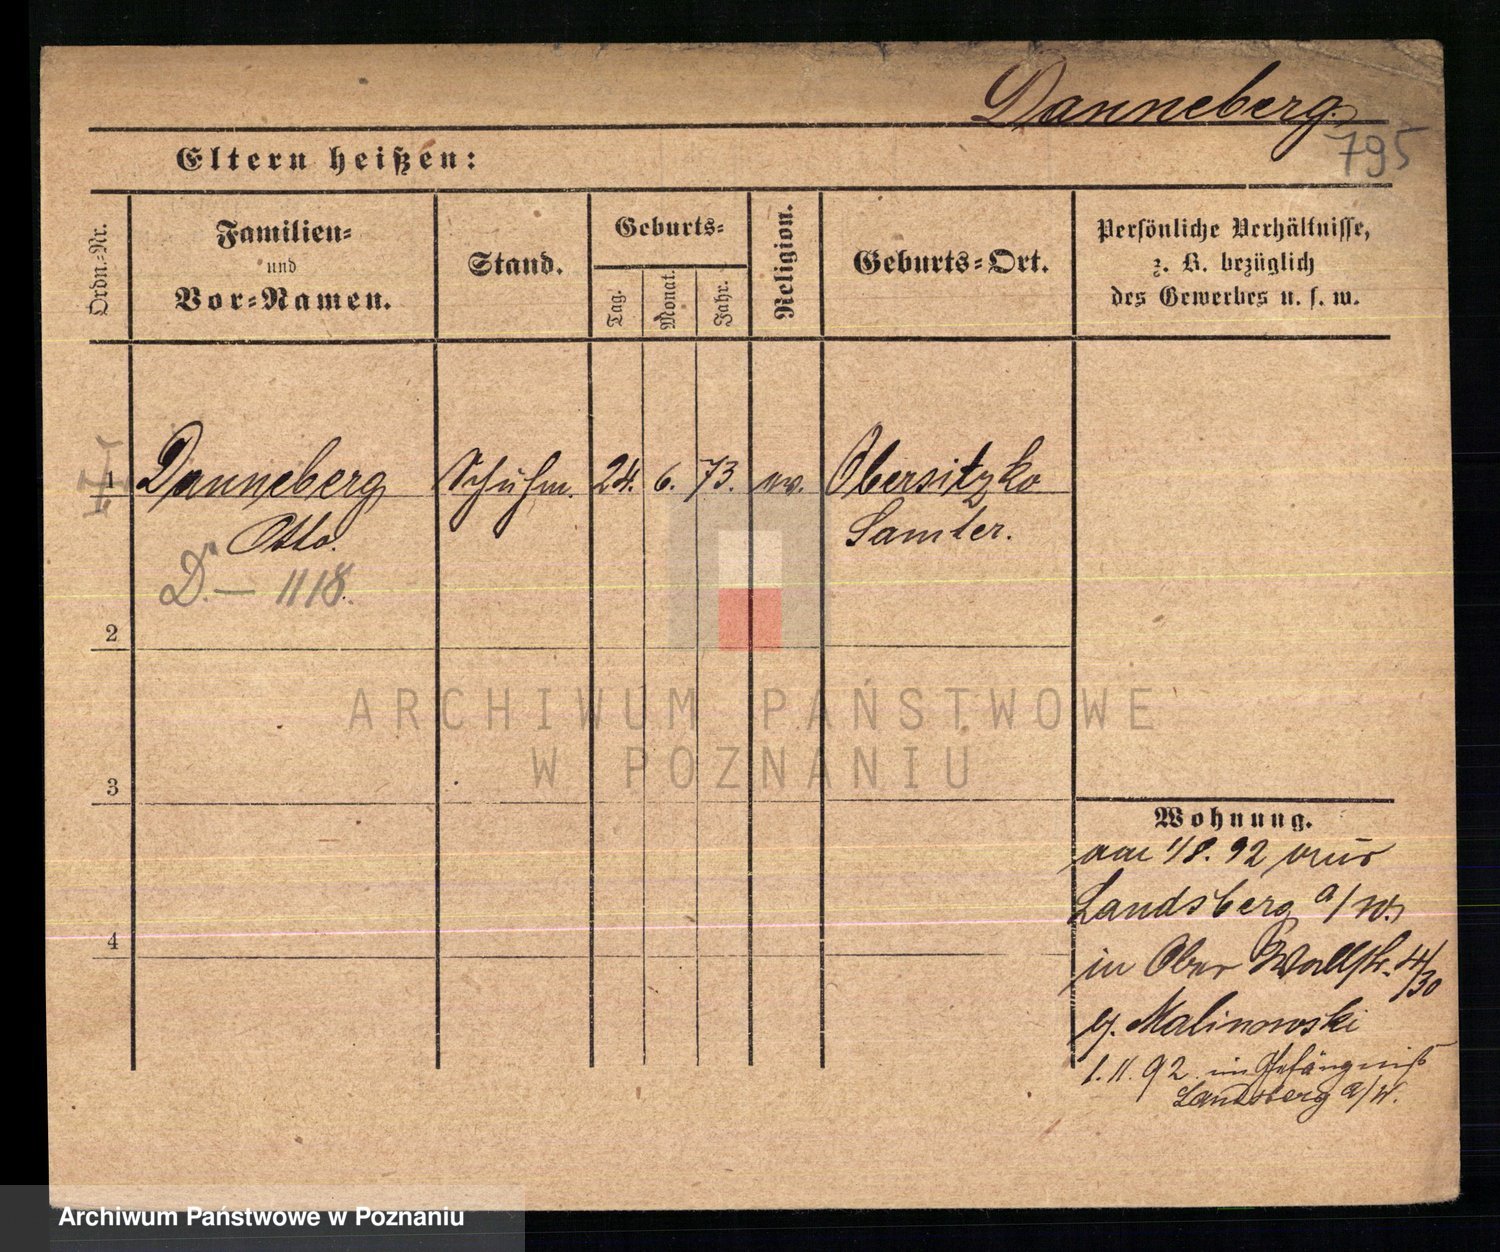 Danneberg.
795
Eltern heißen:
Ordn.-Nr.
Familien-
und
Vor-Namen.
Stand.
Geburts-
Tag.
Monat.
Jahr.
Religion.
Geburts-Ort.
Persönliche Verhältnisse,
z. B. bezüglich
des Gewerbes u. s. w.
1 Danneberg Schuhm. 24. 6. 73. ev. Obersitzko
Otto. Samter.
D. — 1118.
2
3
4
Wohnung.
am 1/8. 92 aus
Landsberg a/W.
in Ober Wallstr. 4/30
b. Malinowski
1. 11. 92. im Gefängniß
Landsberg a/W.
ARCHIWUM PAŃSTWOWE
W POZNANIU
Archiwum Państwowe w Poznaniu